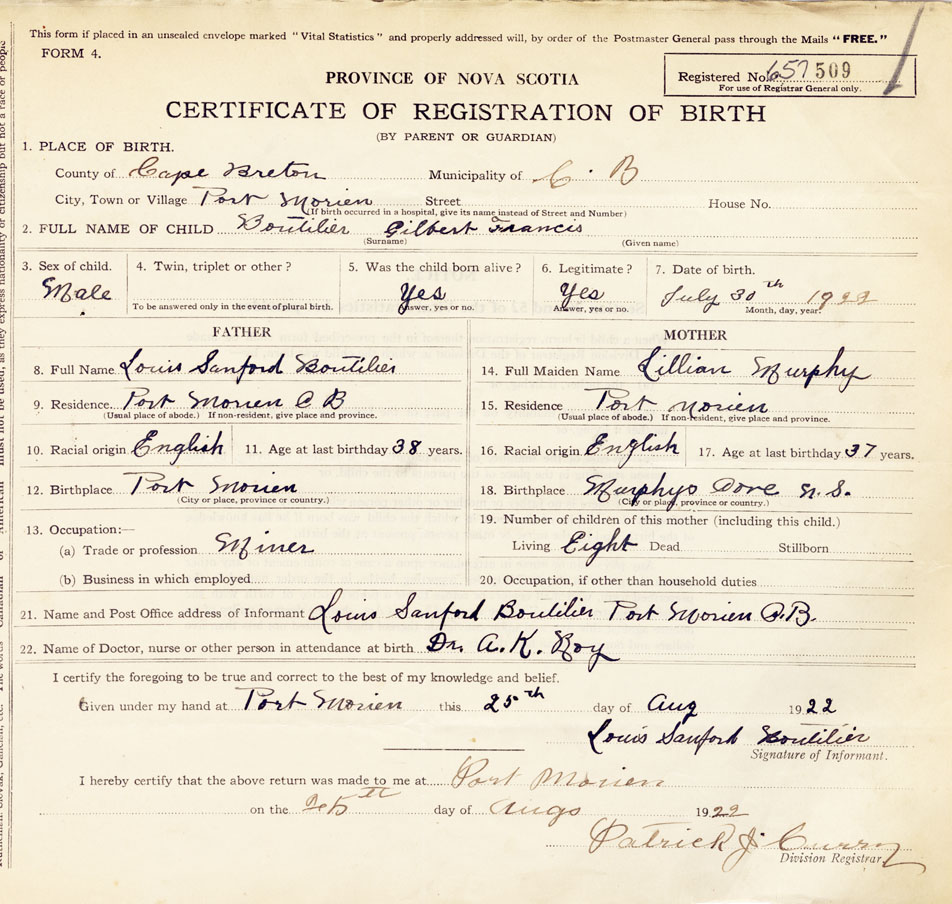 This form if placed in an unsealed envelope marked "Vital Statistics" and properly addressed will, by order of the Postmaster General pass through the Mails "FREE."
FORM 4.
Registered No. 657509
For use of Registrar General only.
PROVINCE OF NOVA SCOTIA
CERTIFICATE OF REGISTRATION OF BIRTH
(BY PARENT OR GUARDIAN)
1. PLACE OF BIRTH.
County of Cape Breton Municipality of C. B
City, Town or Village Port Morien Street House No.
(If birth occurred in a hospital, give its name instead of Street and Number)
2. FULL NAME OF CHILD Boutilier Gilbert Francis
(Surname) (Given name)
3. Sex of child. 4. Twin, triplet or other? 5. Was the child born alive? 6. Legitimate? 7. Date of birth.
Male Yes Yes July 30th 1922
To be answered only in the event of plural birth. Answer, yes or no. Answer, yes or no. Month, day, year.
FATHER MOTHER
8. Full Name Louis Sanford Boutilier 14. Full Maiden Name Lillian Murphy
9. Residence. Port Morien C B 15. Residence Port Morien
(Usual place of abode.) If non-resident, give place and province. (Usual place of abode.) If non-resident, give place and province.
10. Racial origin English 11. Age at last birthday 38 years. 16. Racial origin English 17. Age at last birthday 37 years.
12. Birthplace Port Morien 18. Birthplace Murphys Cove N.S.
(City or place, province or country.) (City or place, province or country.)
13. Occupation:— 19. Number of children of this mother (including this child.)
(a) Trade or profession Miner Living Eight Dead Stillborn
(b) Business in which employed 20. Occupation, if other than household duties
21. Name and Post Office address of Informant Louis Sanford Boutilier Port Morien C.B.
22. Name of Doctor, nurse or other person in attendance at birth Dr. A. K. Roy
I certify the foregoing to be true and correct to the best of my knowledge and belief.
Given under my hand at Port Morien this 25th day of Aug 1922
Louis Sanford Boutilier
Signature of Informant.
I hereby certify that the above return was made to me at Port Morien
on the 25th day of Augs 1922
Patrick J. Curry
Division Registrar